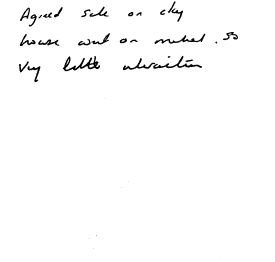 Agreed sale on day
house went on market. So
very little alteration